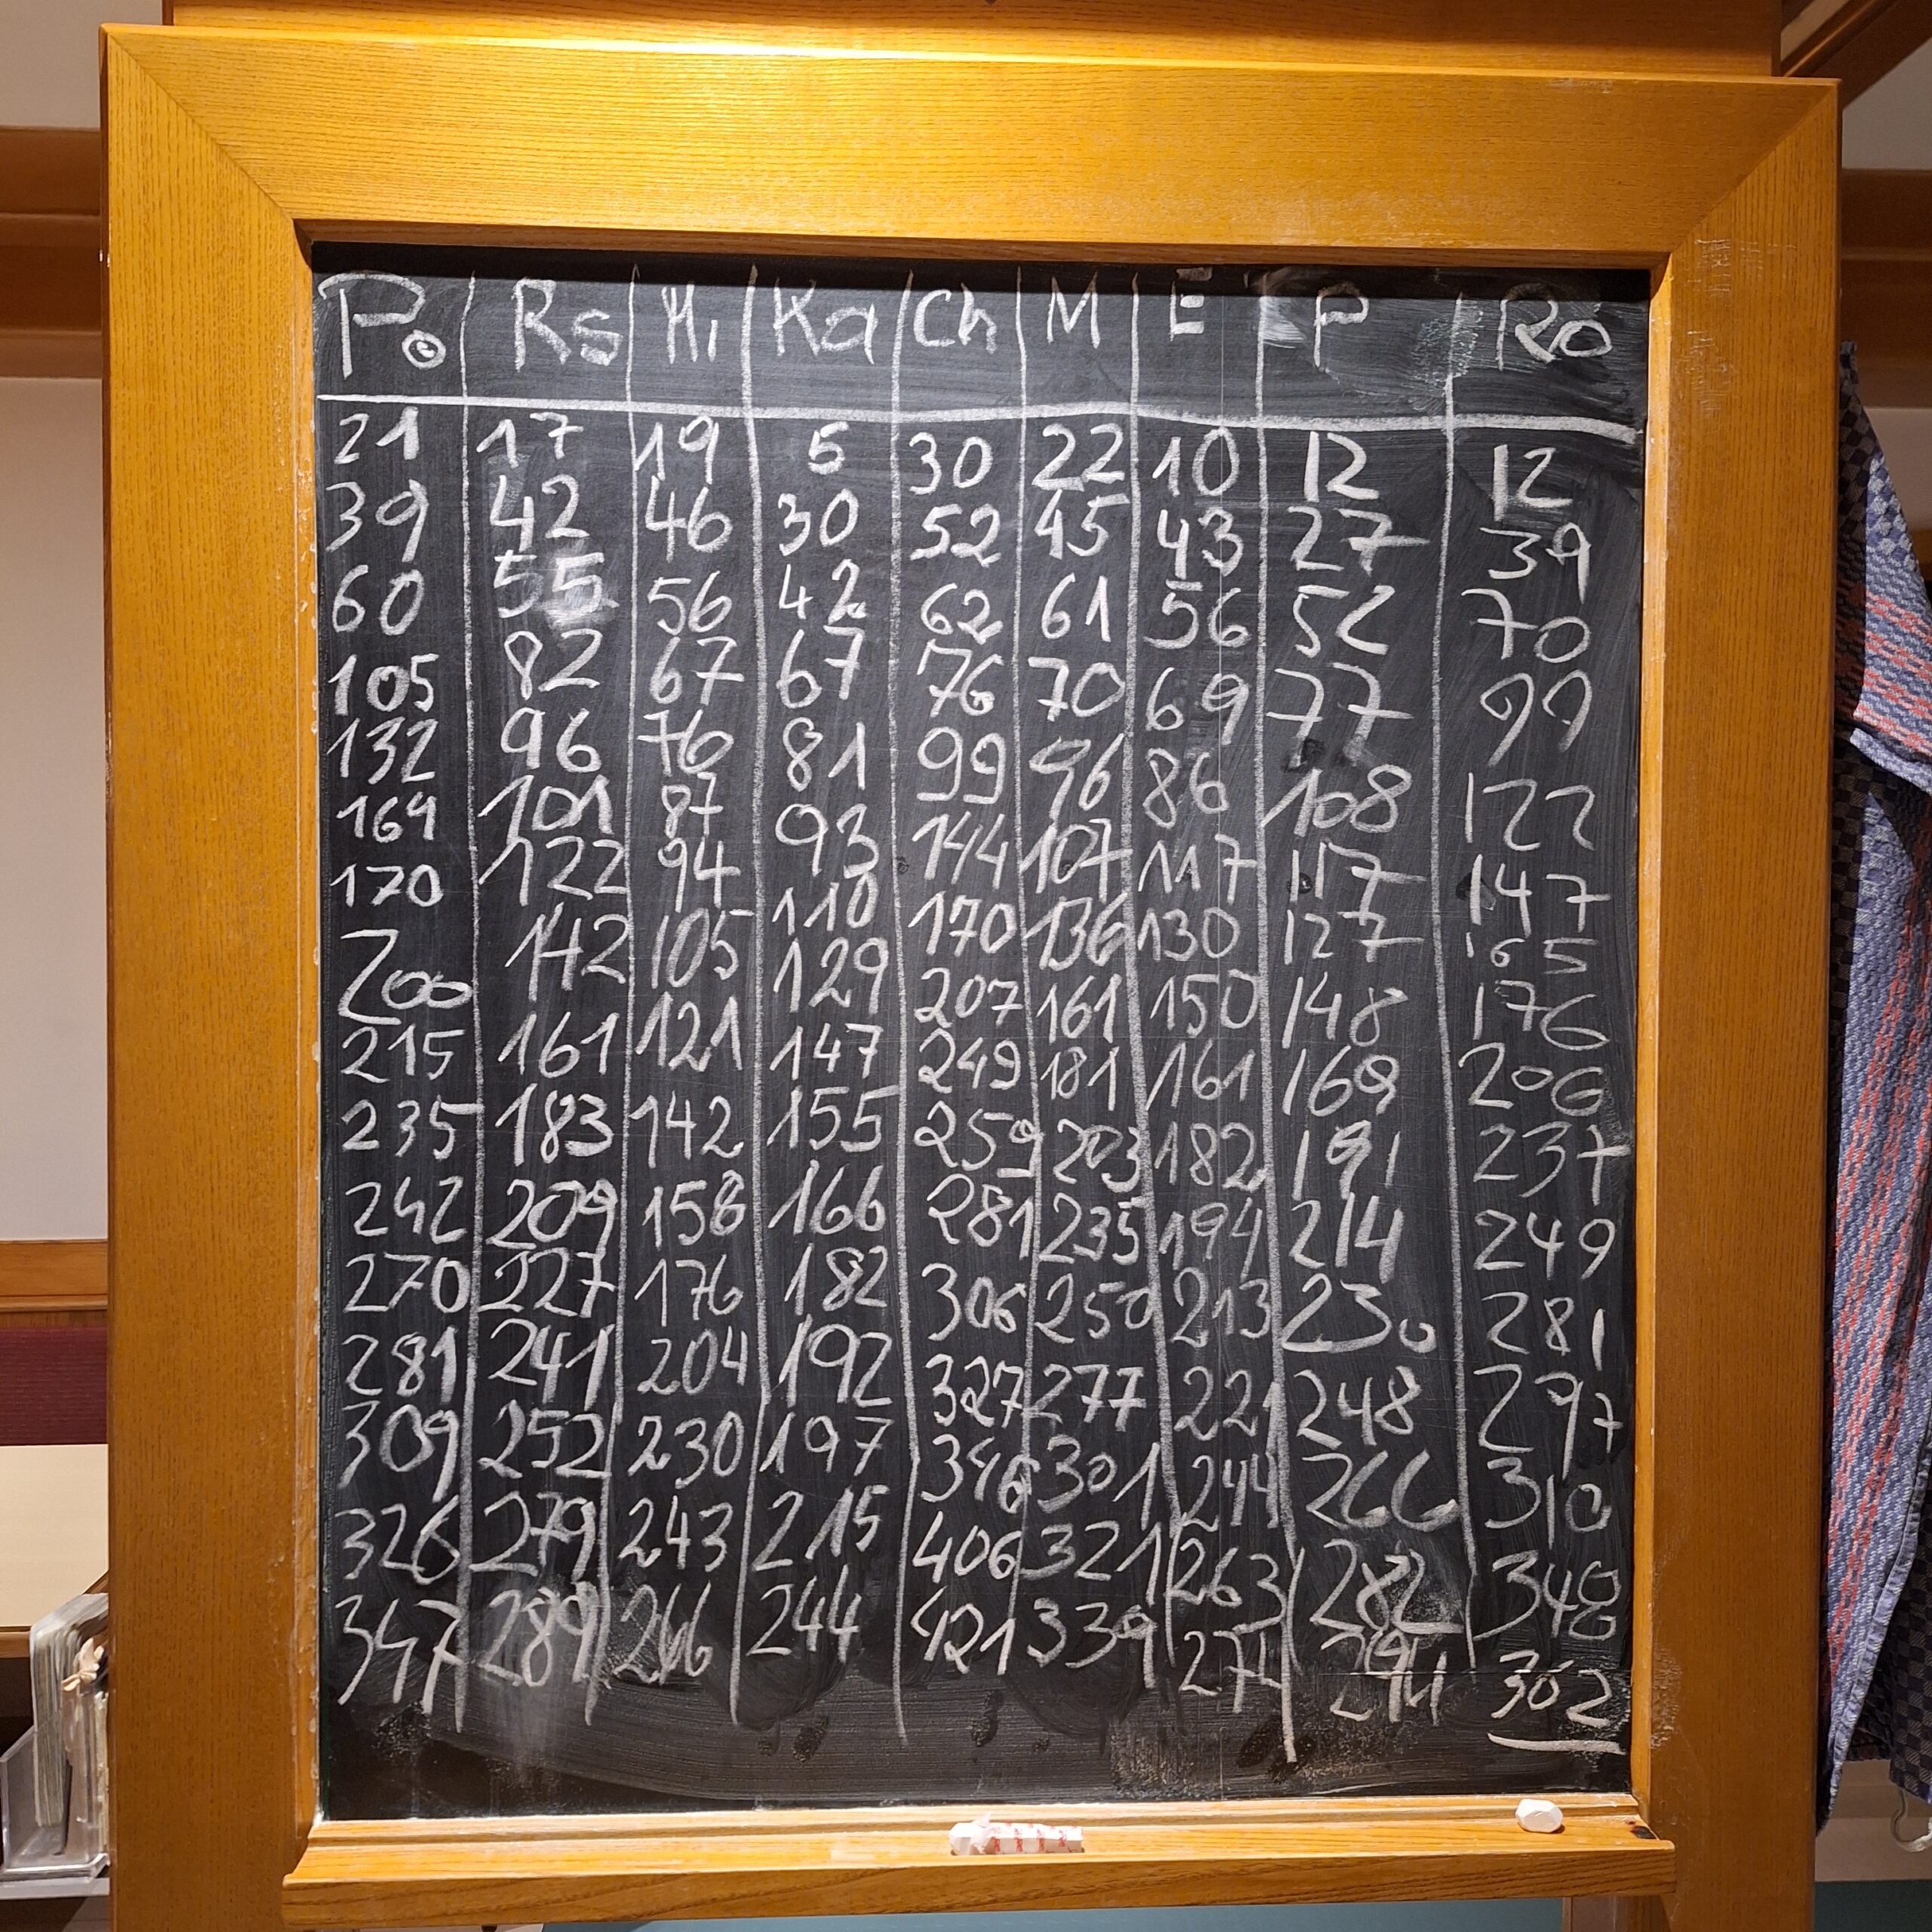 Po Rs Hi Ka Ch M E P Ro
21 17 19 5 30 22 10 12 12
39 42 46 30 52 45 43 27 39
60 55 56 42 62 61 56 52 70
105 82 67 67 76 70 69 77 99
132 96 76 81 99 96 86 108 122
169 101 87 93 144 107 117 117 147
170 122 94 110 170 136 130 127 165
200 142 105 129 207 161 150 148 176
215 161 121 147 249 181 161 169 206
235 183 142 155 259 203 182 191 237
242 209 158 166 281 235 194 214 249
270 227 176 182 306 250 213 230 281
281 241 204 192 327 277 221 248 297
309 252 230 197 301 244 266 310
326 279 243 215 406 321 263 282 348
347 289 266 244 421 339 274 294 302